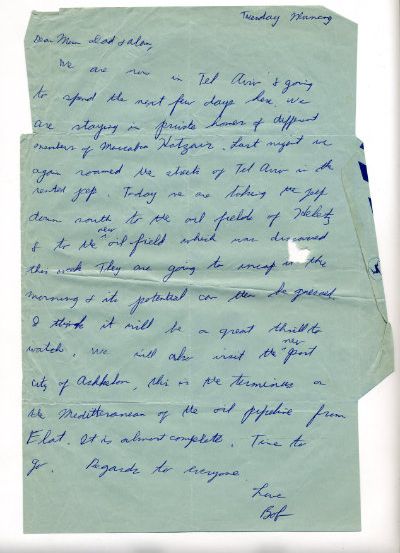 Tuesday Morning
Dear Mom Dad & Alan,
We are now in Tel Aviv & going
to spend the next few days here. We
are staying in private homes of different
members of Maccabia Hatzair. Last night we
again roamed the streets of Tel Aviv in the
rented jeep. Today we are taking the jeep
down south to the oil fields of Heletz
& to the new oil field which was discovered
this week. They are going to uncap in the
morning & its potential can then be guessed.
I think it will be a great thrill to
watch. We will also visit the new port
city of Ashkelon, this is the terminus on
the Mediterranean of the oil pipeline from
Elat. It is almost complete. Time to
go. Regards to everyone.
Love
Bob